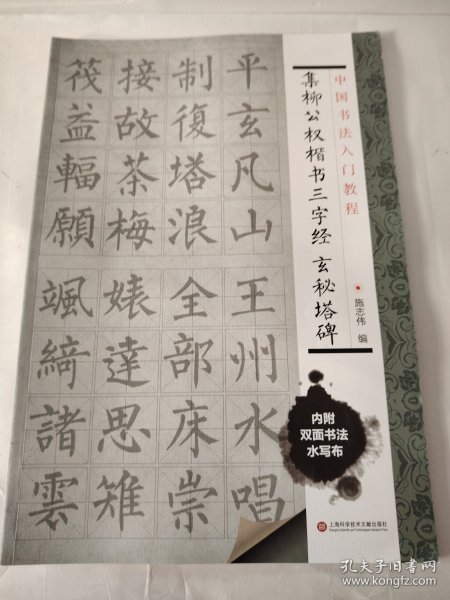 中国书法入门教程
集柳公权楷书三字经 玄秘塔碑
施志伟 编
平玄凡山王州水唱
制復塔浪全部床崇
接故茶梅婊達思雉
筏益輻願颯綺諸雲
内附
双面书法
水写布
上海科学技术文献出版社
孔夫子旧书网
www.kongfz.com